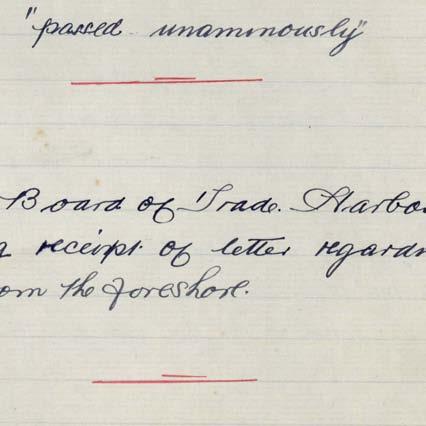 "passed unaminously"
Board of Trade. Harbo
g receipt of letter regardn
om the foreshore.